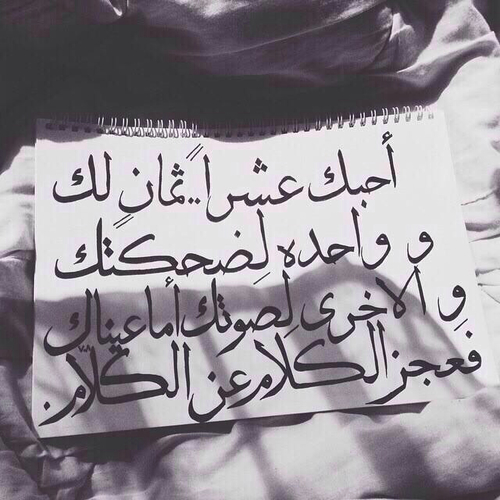 أحبك عشراً .. ثمانٍ لك
و واحده لِضحكتك
وِ الاخرى لِصوتك أما عيناك
فَعجز الكلام عن الكلّام.